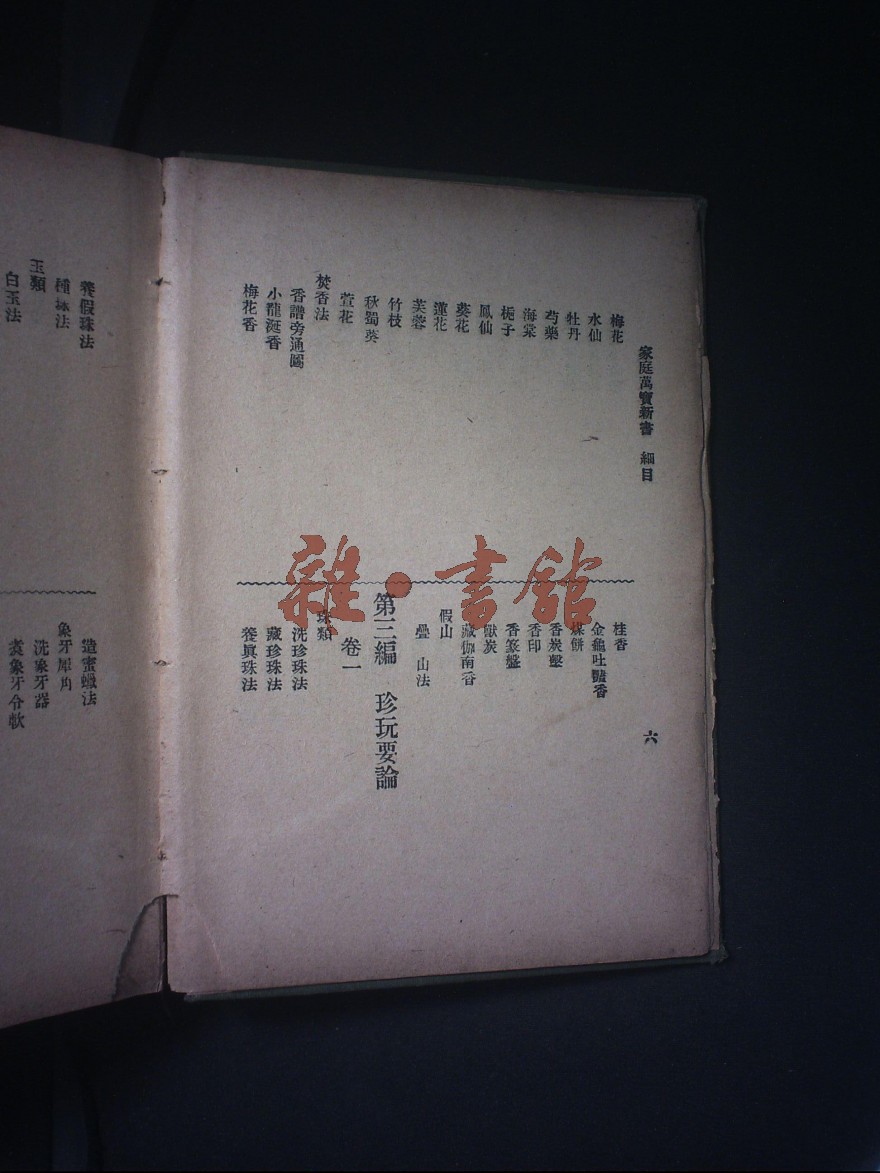 家庭萬寶新書 細目
六
梅花
水仙
牡丹
芍藥
海棠
梔子
鳳仙
葵花
蓮花
芙蓉
竹枝
秋蜀葵
萱花
焚香法
香譜旁通圖
小龍涎香
梅花香
桂香
金龜吐豔香
煤餅
香炭墼
香印
香篆盤
獸炭
藏伽南香
假山
疊山法
第三編 珍玩要論
卷一
珠類
洗珍珠法
藏珍珠法
養眞珠法
養假珠法
種珠法
玉類
白玉法
造蜜蠟法
象牙犀角
洗象牙器
煑象牙令軟
雜·書館